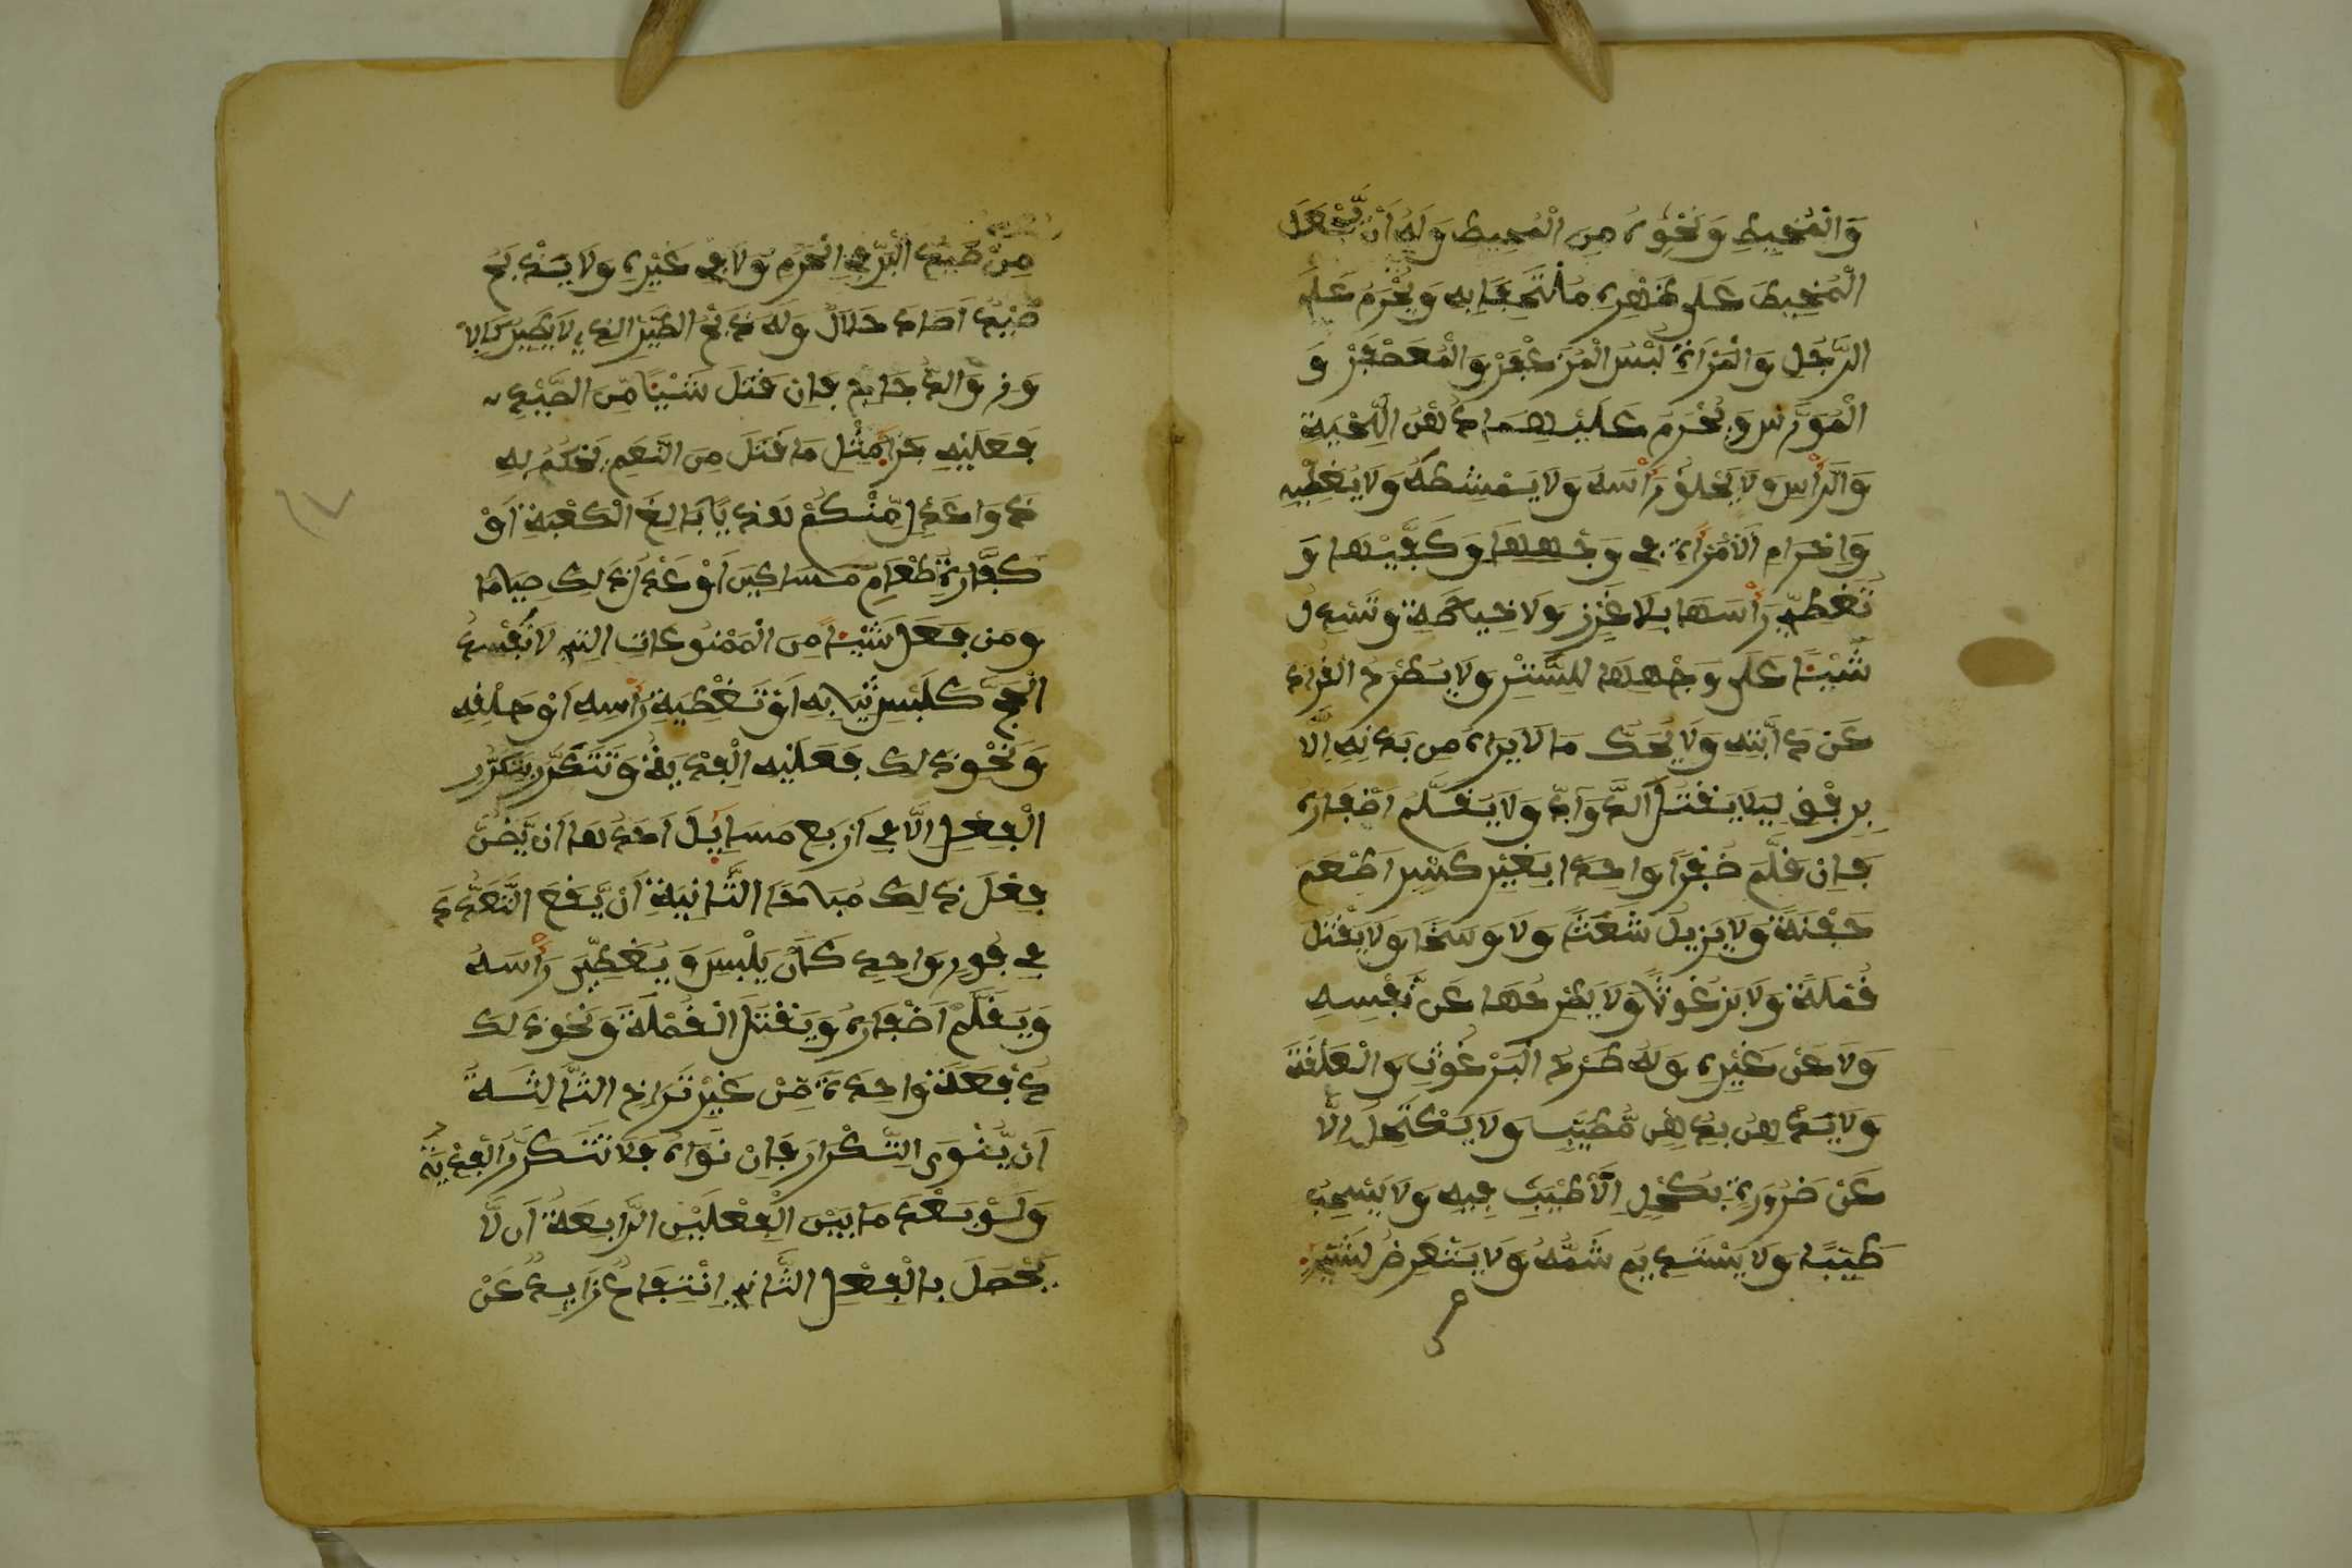 وَالْمُخِيطِ وَنَحْوِهِ مِنَ الْمُحِيطِ وَلَهُ أَنْ يَّجْعَلَ
الْمُخِيطَ عَلَى ظَهْرِهِ مُلْتَحِفًا بِهِ وَيَحْرُمُ عَلَى
الرَّجُلِ وَالْمَرْأَةِ لُبْسُ الْمُزَعْفَرْ وَالْمُعَصْفَرْ وَ
الْمُوَرَّسِ وَيَحْرُمُ عَلَيْهِمَا دُهْنُ اللِّحْيَةِ
وَالرَّأْسِ وَلَا يَحْلِقُ رَأْسَهُ وَلَا يَمْشِطُهُ وَلَا يُغَطِّيهِ
وَإِحْرَامِ الْامْرَأَةِ فِي وَجْهِهَا وَكَفَّيْهَا وَ
تُغَطِّي رَأْسَهَا بِلَا غَرْزٍ وَلَا خِيَاطَةٍ وَتَسْدِلُ
شَيْئًا عَلَى وَجْهِهَا لِلسَّتْرِ وَلَا يَطْرَحُ الْقُرَادَ
عَن دَابَّتِهِ وَلَا يَحُكُّ مَا لَا يَرَاهُ مِن بَدَنِهِ إِلَّا
بِرِفْقٍ لِيَلَا يَقْتُلَ الدَّوَابَّ وَلَا يُقَلِّمُ أَظْفَارَهُ
فَإِنْ قَلَّمَ ظُفْرًا وَاحِدًا بِغَيْرِ كَسْرٍ أَطْعَمَ
حَفْنَةً وَلَا يُزِيلُ شَعَثًا وَلَا وَسَخًا وَلَا يَقْتُل
قُمْلَةً وَلَا بَرْغُوثًا وَلَا يَطْرَحُهَا عَن نَّفْسِهِ
وَلَا عَنْ غَيْرِهِ وَلَهُ طَرْحُ الْبَرْغُوثِ وَالْعَلَقَةِ
وَلَا يَدَّهِنُ بِدُهْنٍ مُّطَيَّبٍ وَلَا يَكْتَحِلُ إِلَّا
عَنْ ضَرُورَةٍ بِكُحْلٍ لَا طِيبَ فِيهِ وَلَا يَمَسُّ
طِيبًا وَلَا يَسْتَدِيمُ شَمَّهُ وَلَا يَتَعَرَّضُ لِشَيْءٍ
مِنْ صَيْدِ الْبَرِّ فِي الْحَرَمِ وَلَا فِي غَيْرِهِ وَلَا يَذْبَحُ
صَيْدًا صَادَهُ حَلَالٌ وَلَهُ ذَبْحُ الطَّيْرِ الَّذِي لَا يَطِيرُ كَالْا
وَزِّ وَالدَّجَاجِ فَإِن قَتَلَ شَيْئًا مِّنَ الصَّيْدِ
فَعَلَيْهِ جَزَاءٌ مِّثْلُ مَا قَتَلَ مِنَ النَّعَمِ يَحْكُمُ بِهِ
ذَوَا عَدْلٍ مِّنْكُمْ هَدْيًا بَالِغَ الْكَعْبَةِ أَوْ
كَفَّارَةٌ طَعَامُ مَسَاكِينَ أَوْ عَدْلُ ذَلِكَ صِيَامًا
وَمَن فَعَلَ شَيْئًا مِنَ الْمَمْنُوعَاتِ الَّتِي لَا تُفْسِدُ
الْحَجَّ كَلُبْسِ ثِيَابِهِ أَوْ تَغْطِيَةِ رَأْسِهِ أَوْ حَلْقِهِ
وَنَحْوِ ذَلِكَ فَعَلَيْهِ الْفِدْيَةُ وَتَتَكَرَّرُ بِتَكَرُّرِ
الْفِعْلِ إِلَّا فِي أَرْبَعِ مَسَائِلَ أَحَدُهَا أَن يَّظُنَّ
فِعْلَ ذَلِكَ مُبَاحًا الثَّانِيَةِ أَنْ يَّقَعَ التَّعَدُّدَ
فِي فَوْرٍ وَاحِدٍ كَأَن يَلْبَسَ وَيُغَطِّيَ رَأْسَهُ
وَيُقَلِّمَ أَظْفَارَهُ وَيَقْتُلَ الْقُمْلَةَ وَنَحْوِ ذَلِكَ
دُفْعَةً وَاحِدَةً مِّنْ غَيْرِ تَرَاخٍ الثَّالِثَةُ
أَن يَّنْوِيَ التِّكْرَارَ فَإِنْ نَوَاهُ فَلَا تَتَكَرَّرُ الْفِدْيَةُ
وَلَوْ بَعُدَ مَا بَيْنَ الْفِعْلَيْنِ الرَّابِعَةُ أَن لَّا
يَحْصُلَ بِالْفِعْلِ الثَّانِي انْتِفَاعٌ زَايِدٌ عَنْ